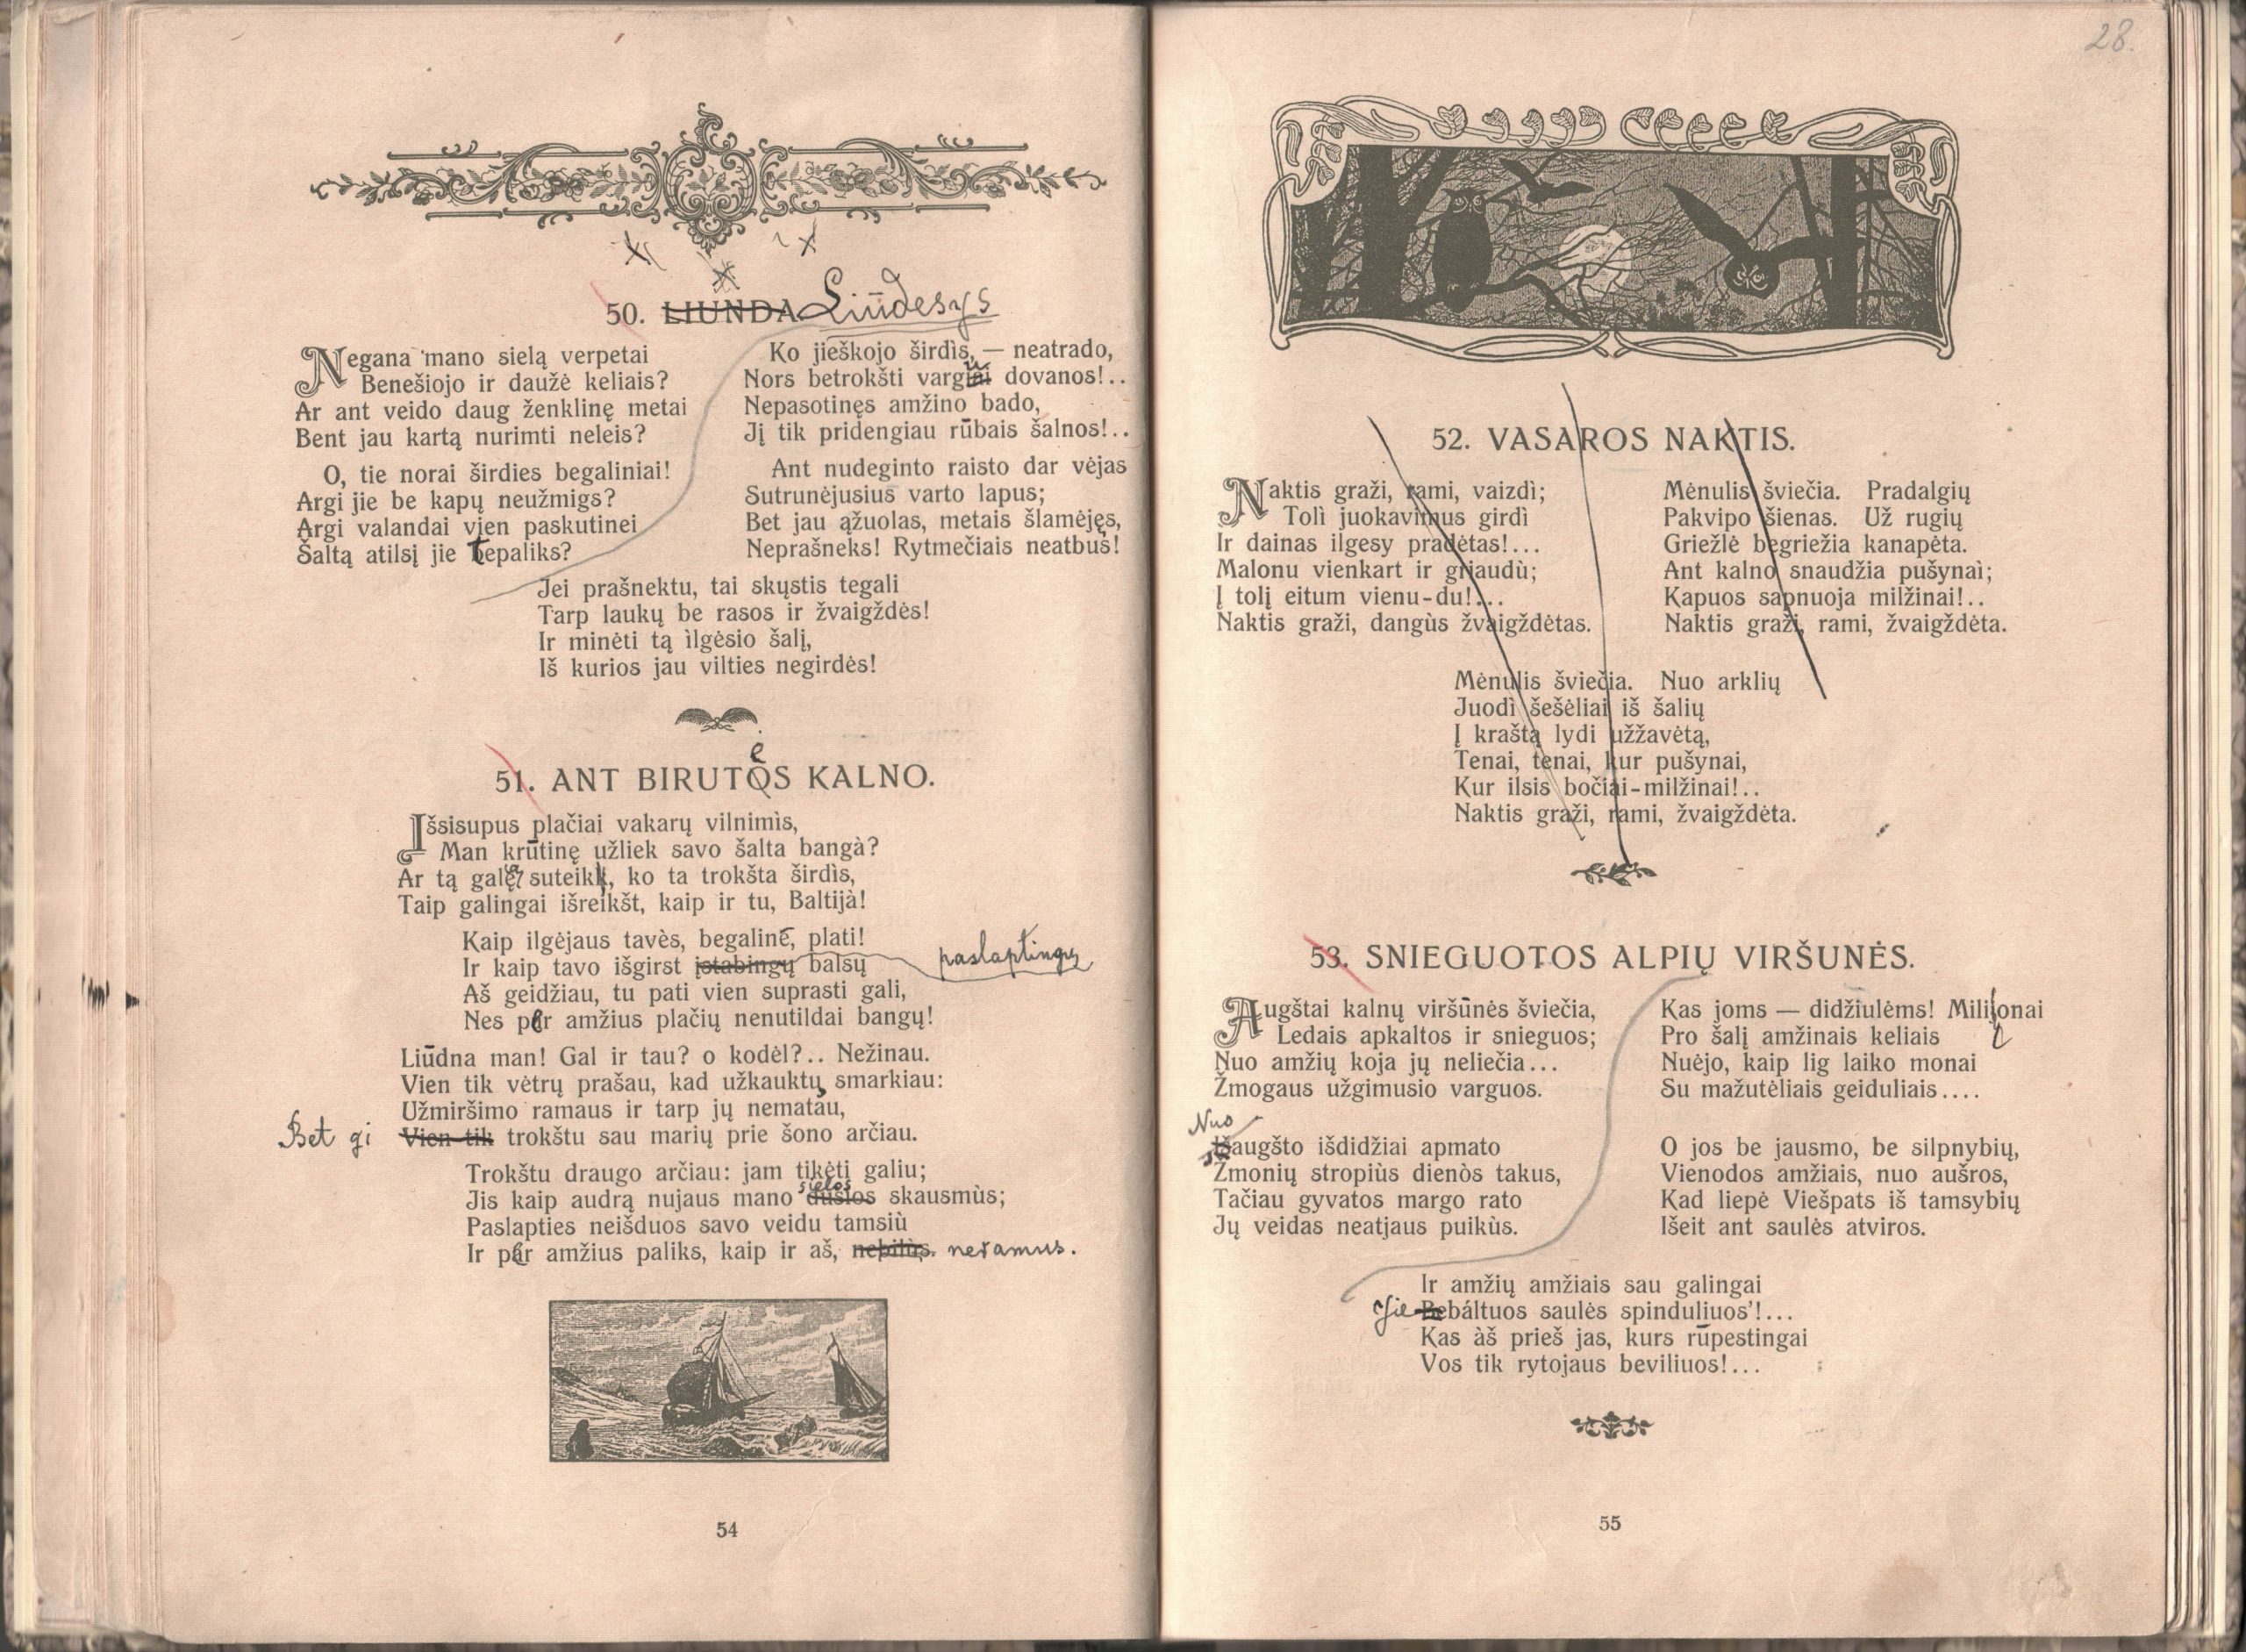 50. LIUNDA Liūdesys
Negana mano sielą verpetai
Benešiojo ir daužė keliais?
Ar ant veido daug ženklinę metai
Bent jau kartą nurimti neleis?
O, tie norai širdies begaliniai!
Argi jie be kapų neužmigs?
Argi valandai vien paskutinei
Šaltą atilsį jie tepaliks?
Ko jieškojo širdìs, — neatrado,
Nors betrokšti vargiai dovanos!..
Nepasotinęs amžino bado,
Jį tik pridengiau rūbais šalnos!..
Ant nudeginto raisto dar vėjas
Sutrunėjusius varto lapus;
Bet jau ąžuolas, metais šlamėjęs,
Neprašneks! Rytmečiais neatbus!
Jei prašnektu, tai skųstis tegali
Tarp laukų be rasos ir žvaigždės!
Ir minėti tą ìlgėsio šalį,
Iš kurios jau vilties negirdės!
51. ANT BIRUTĖS KALNO.
Išsisupus plačiai vakarų vilnimìs,
Man krūtinę užliek savo šalta bangà?
Ar tą galę suteik, ko ta trokšta širdìs,
Taip galingai išreikšt, kaip ir tu, Baltijà!
Kaip ilgėjaus tavès, begalinė, plati!
Ir kaip tavo išgirst įstabingų balsų paslaptingų
Aš geidžiau, tu pati vien suprasti gali,
Nes per amžius plačių nenutildai bangų!
Liūdna man! Gal ir tau? o kodėl?.. Nežinau.
Vien tik vėtrų prašau, kad užkauktų smarkiau:
Užmiršimo ramaus ir tarp jų nematau,
Bet gi Vien tik trokštu sau marių prie šono arčiau.
Trokštu draugo arčiau: jam tikėti galiu;
sielos
Jis kaip audrą nujaus mano dušios skausmùs;
Paslapties neišduos savo veidu tamsiù
Ir per amžius paliks, kaip ir aš, nebilùs. neramus.
54
28.
52. VASAROS NAKTIS.
Naktis graži, rami, vaizdì;
Tolì juokavimus girdì
Ir dainas ilgesy pradėtas!...
Malonu vienkart ir griaudù;
Į tolį eitum vienu-du!...
Naktis graži, dangùs žvaigždėtas.
Mėnulis šviečia. Pradalgių
Pakvipo šienas. Už rugių
Griežlė begriežia kanapėta.
Ant kalno snaudžia pušynaì;
Kapuos sapnuoja milžinai!..
Naktis graži, rami, žvaigždėta.
Mėnulis šviečia. Nuo arklių
Juodì šešėliai iš šalių
Į kraštą lydi užžavėtą,
Tenai, tenai, kur pušynai,
Kur ilsis bočiai-milžinai!..
Naktis graži, rami, žvaigždėta.
53. SNIEGUOTOS ALPIŲ VIRŠUNĖS.
Augštai kalnų viršūnės šviečia,
Ledais apkaltos ir snieguos;
Nuo amžių koja jų neliečia...
Žmogaus užgimusio varguos.
Nuo
Iš augšto išdidžiai apmato
Žmonių stropiùs dienòs takus,
Tačiau gyvatos margo rato
Jų veidas neatjaus puikùs.
Kas joms — didžiulėms! Milijonai
Pro šalį amžinais keliais
Nuėjo, kaip lig laiko monai
Su mažutėliais geiduliais....
O jos be jausmo, be silpnybių,
Vienodos amžiais, nuo aušros,
Kad liepė Viešpats iš tamsybių
Išeit ant saulės atviros.
Ir amžių amžiais sau galingai
Jie Bebáltuos saulės spinduliuos'!...
Kas àš prieš jas, kurs rūpestingai
Vos tik rytojaus beviliuos!...
55